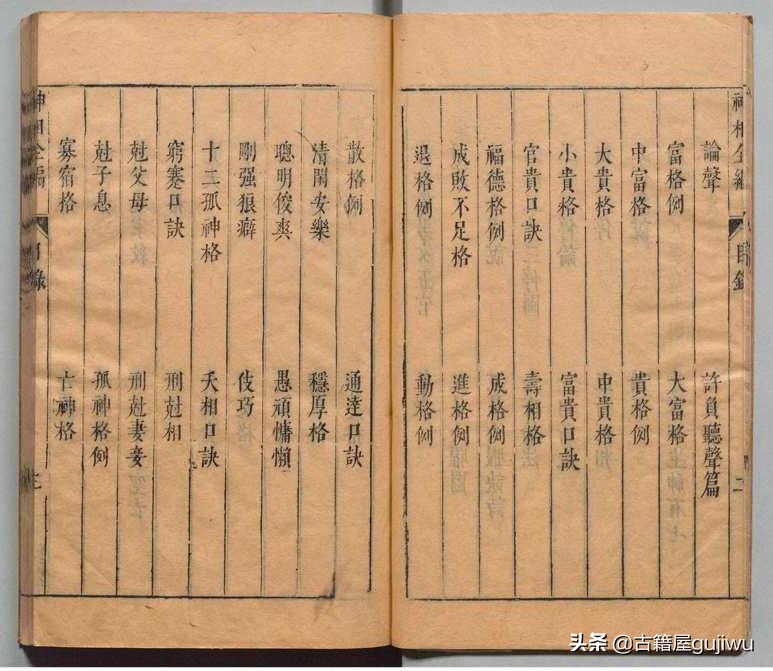 神相全編 目錄 二
論聲 許負聽聲篇
富格例 大富格
中富格 貴格例
大貴格例 中貴格
小貴格 富貴口訣
官貴口訣 壽相格
福德格例 成格例
成敗不足格 進格例
退格例 動格例
散格例 通達口訣
清閑安樂 穩厚格
聰明俊爽 愚頑慵懶
剛强狠癖 伎巧
十二孤神格 夭相口訣
窮蹇口訣 刑尅相
尅父母 刑尅妻妾
尅子息 孤神格例
寡宿格 亡神格
神相全編 目錄
头条 @古籍屋gujiwu